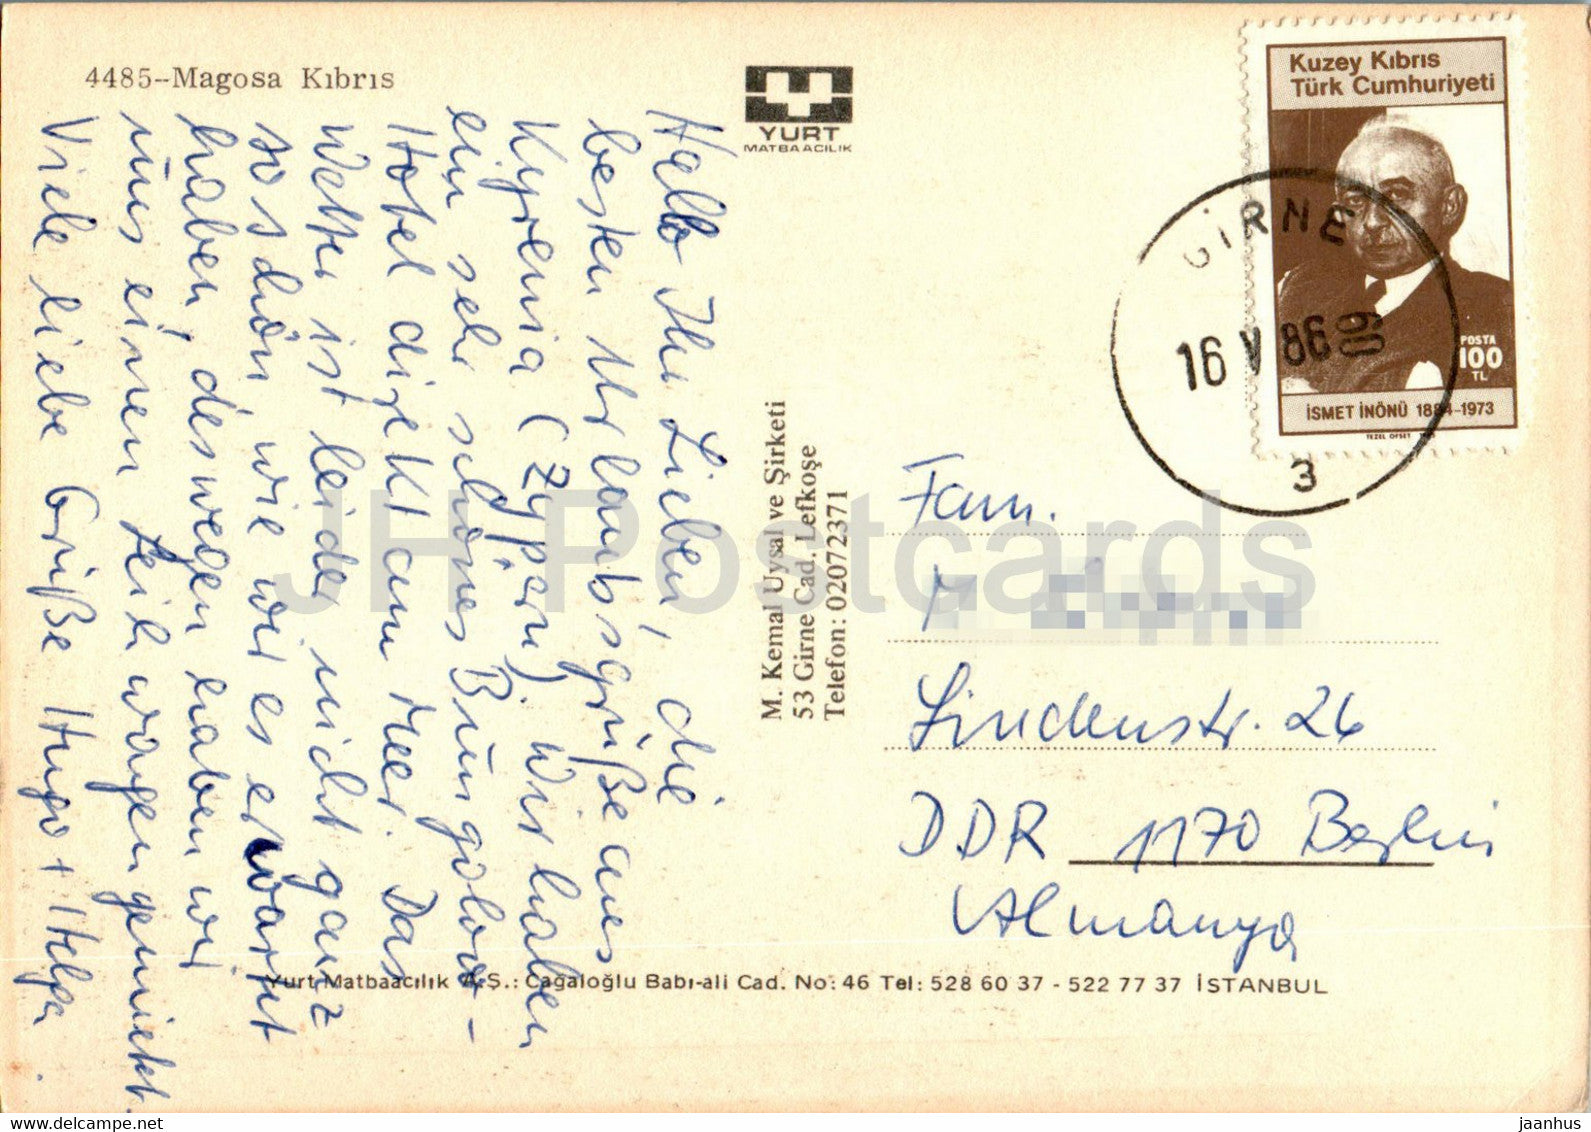 4485--Magosa Kıbrıs
YURT
MATBAACILIK
Kuzey Kıbrıs
Türk Cumhuriyeti
POSTA
100
TL
İSMET İNÖNÜ 1884-1973
TEZEL OFSET
GİRNE
16 V 86 09
3
Hallo Ihr Lieben, die
besten Urlaubsgrüße aus
Kyrenia (Zypern). Wir haben
ein sehr schönes Bungolow-
Hotel direkt am Meer. Das
Wetter ist leider nicht ganz
so schön wie wir es erwartet
haben, deswegen haben wir
uns einen Leihwagen gemietet.
Viele liebe Grüße Hugo + Helga.
M. Kemal Uysal ve Şirketi
53 Girne Cad. Lefkoşe
Telefon: 02072371
Fam.
M
Lindenstr. 26
DDR 1170 Berlin
Almanya
Yurt Matbaacılık A.Ş.: Cağaloğlu Babı-ali Cad. No: 46 Tel: 528 60 37 - 522 77 37 İSTANBUL
JH Postcards
www.delcampe.net
jaanhus